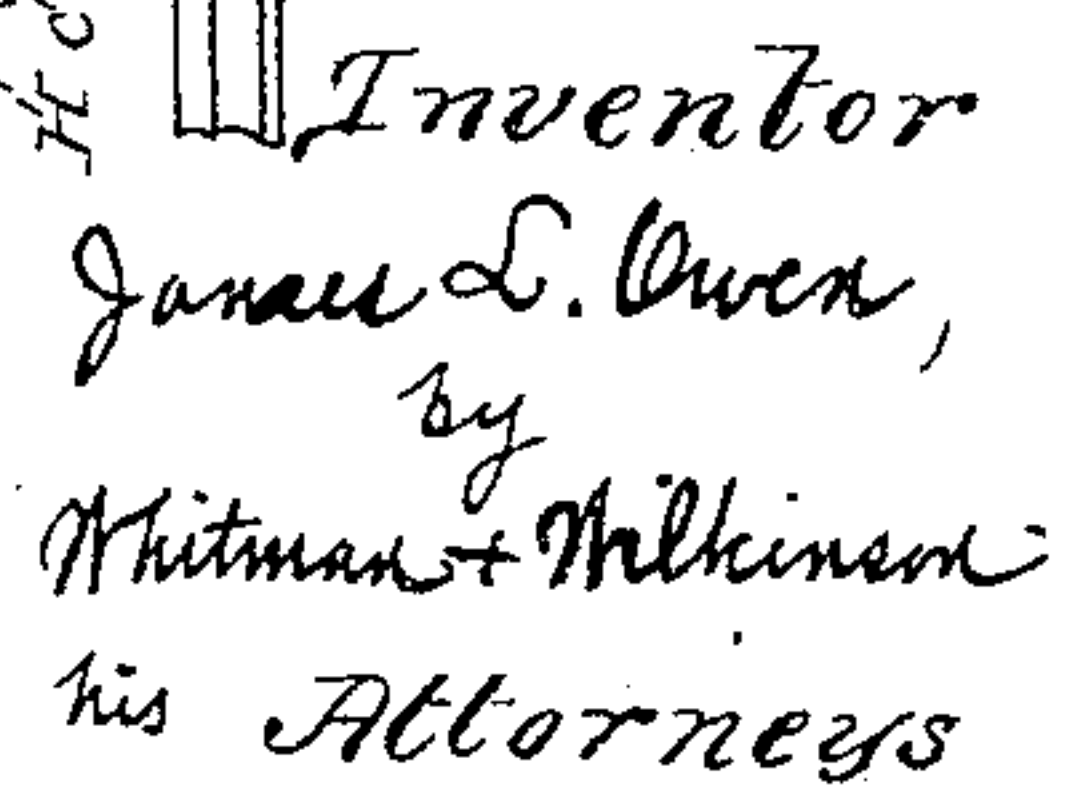 Inventor
James L. Owen,
by
Whitman + Wilkinson
his Attorneys